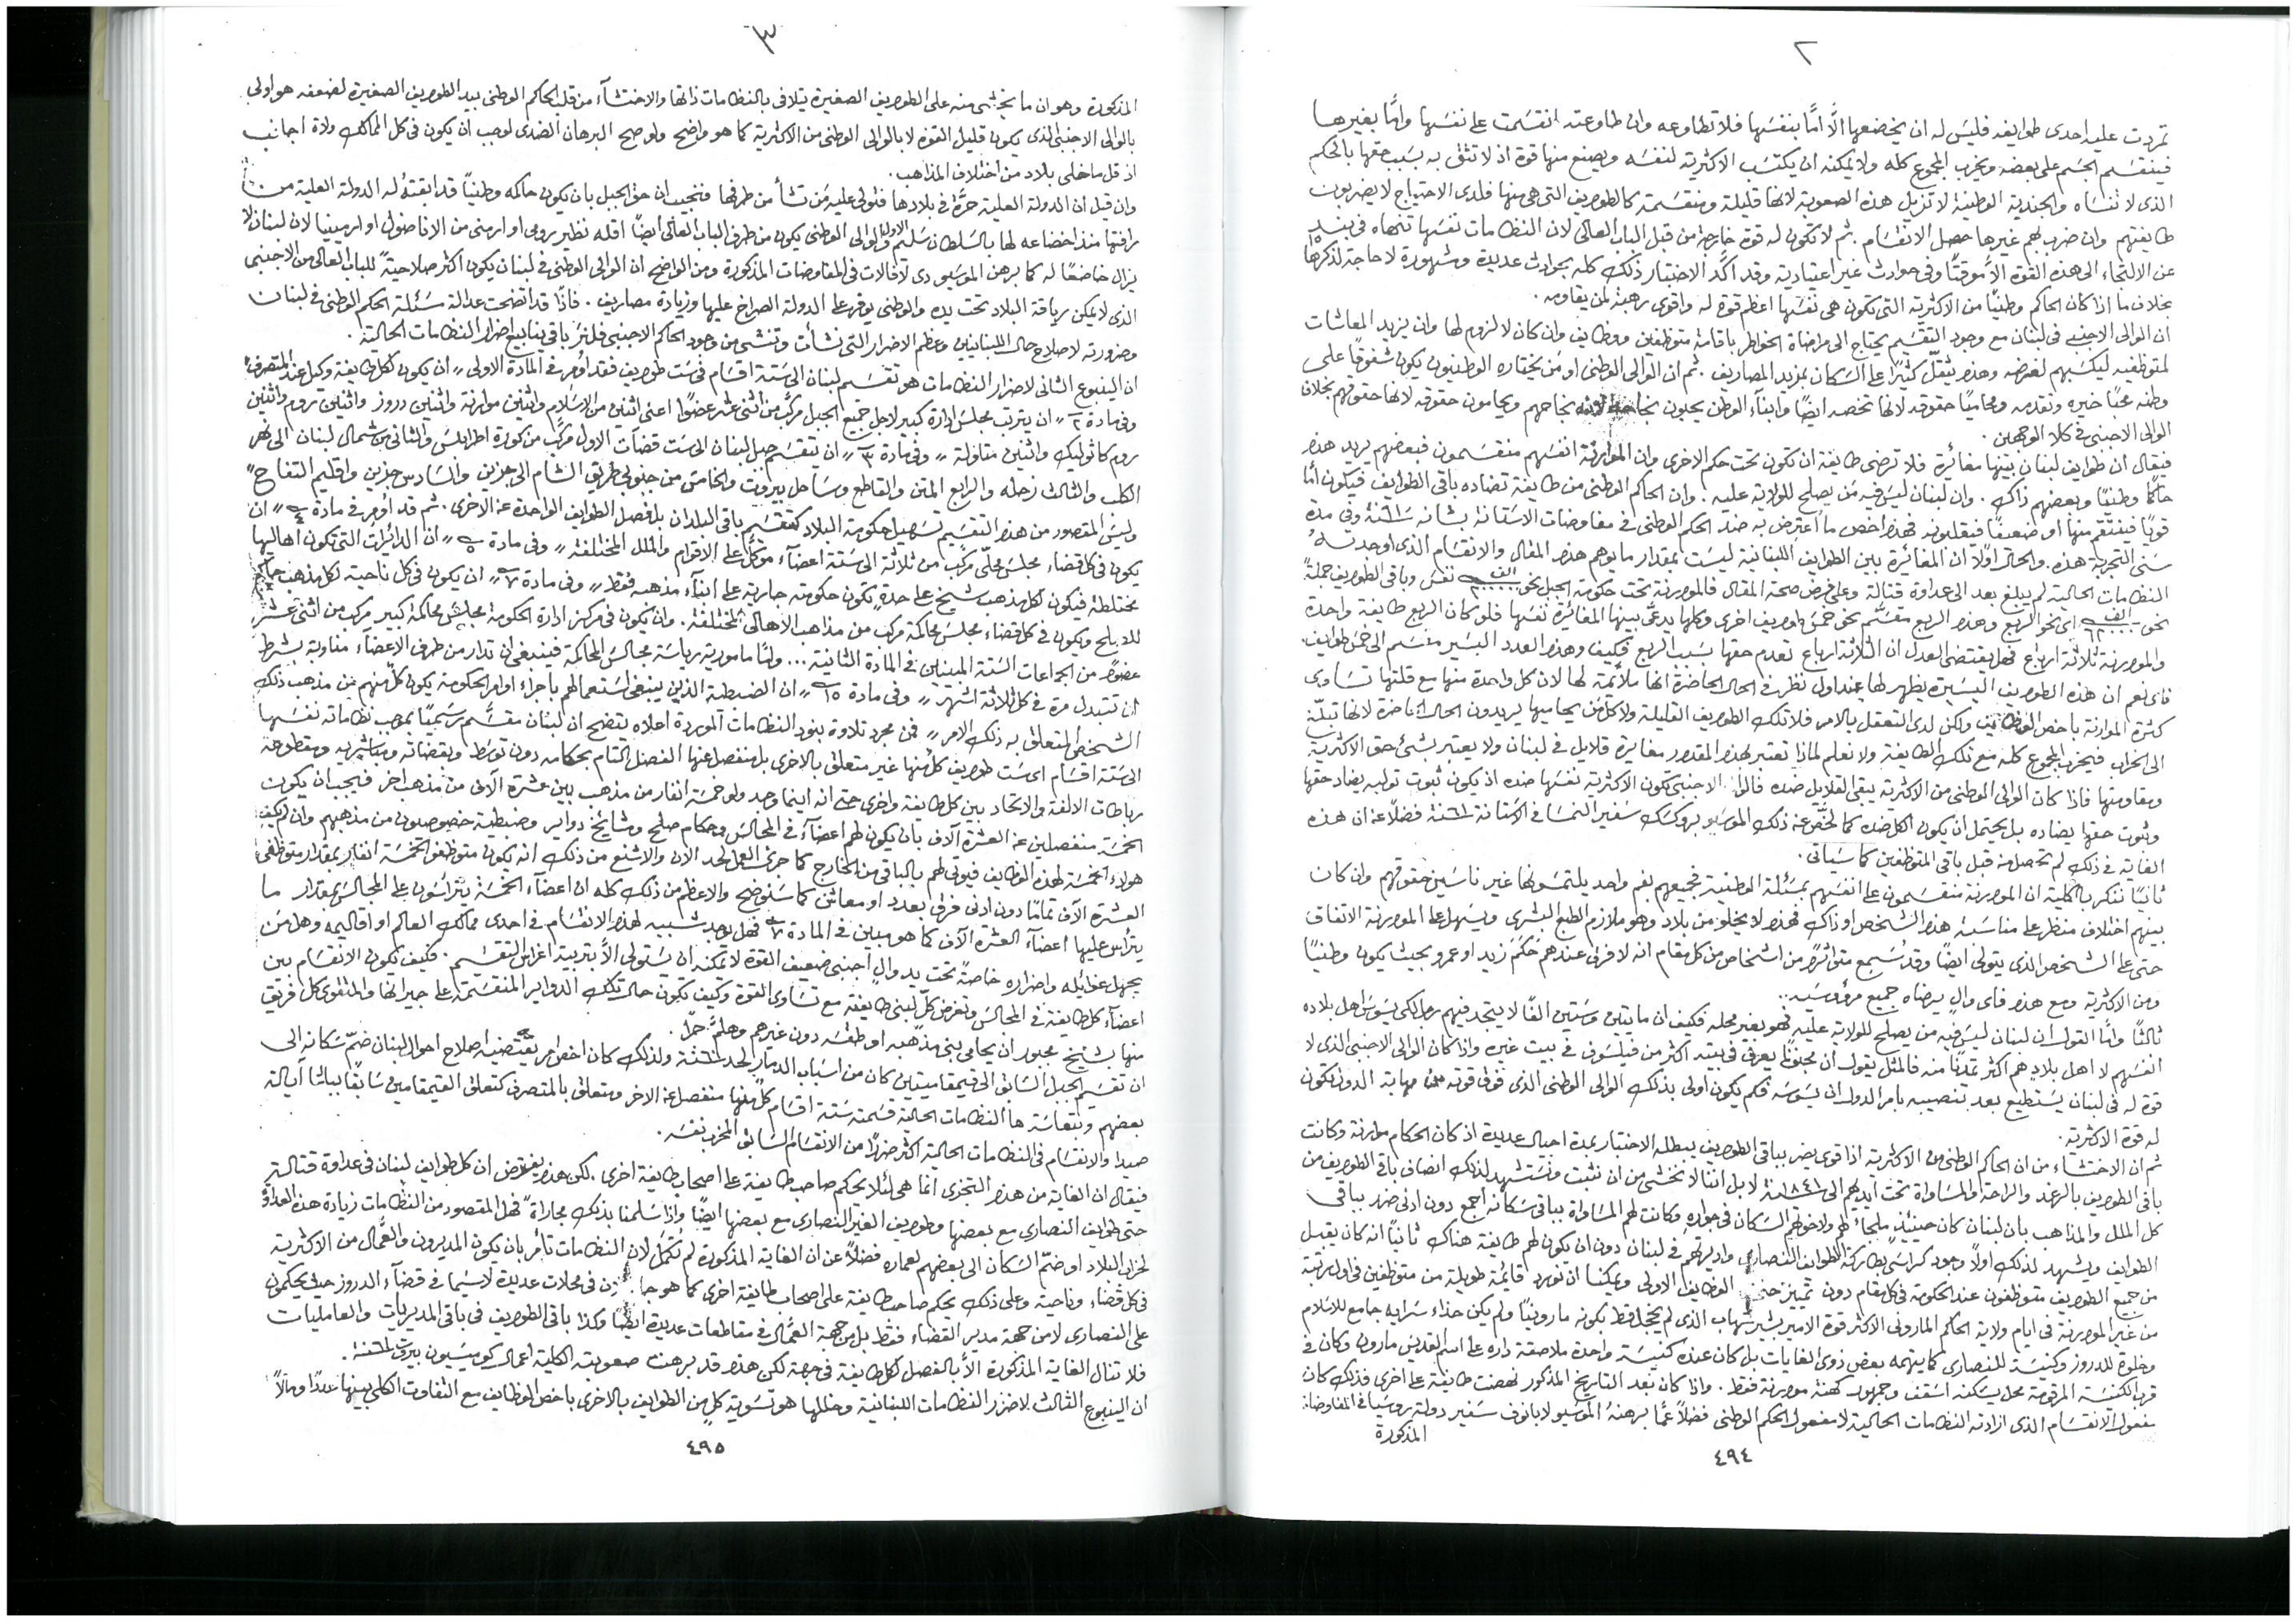 ٢
تمردت عليه احدى طوايفه فليس له ان يخضعها الَّا امَّا بنفسها فلا تطاوعه وان طاوعته انقسمت على نفسها وامَّا بغيرها
فينقسم الجسم على بعضه ويخرب المجموع كله ولا يمكنه ان يكتسب الاكثرية لنفسه ويصنع منها قوة اذ لا تثق به بسبب حقها بالحكم
الذى لا تنساه والجندية الوطنية لا تزيل هذه الصعوبة لانها قليلة ومنقسمة كالطوايف التى هى منها فلدى الاحتياج لا يضربون
طايفتهم وان ضربهم غيرها حصل الانقسام. ثم لا تكون له قوة خارجة من قبل الباب العالى لان النظامات نفسها تنهاه فى بند ١٥
عن الالتجاء الى هذه القوة الَّا موقتًا وفى حوادث غير اعتيادية وقد اكَّد الاختبار ذلك كله بحوادث عديدة ومشهورة لا حاجة لذكرها
بخلاف ما اذا كان الحاكم وطنيًا من الاكثرية التى تكون هى نفسها اعظم قوة له واقوى رهبة لمن يقاومه.
ان الوالى الاجنبى فى لبنان مع وجود التقسيم يحتاج الى مراضاة الخواطر باقامة متوظفين ووظايف وان كان لا لزوم لها وان يزيد المعاشات
لمتوظفيه ليكسبهم لغرضه وهذه تثقّل كثيرًا على السكان بمزيد المصاريف. ثم ان الوالى الوطنى او من يختاره الوطنيون يكون شفوقًا على
وطنه محبًا خيره وتقدمه ومحاميًا حقوقه لانها تخصه ايضًا وابناء الوطن يحبون نجاحه لانه نجاحهم ويحامون حقوقه لانها حقوقهم بخلاف
الوالى الاجنبى فى كلا الوجهين.
فيقال ان طوايف لبنان بينها مغائرة فلا ترضى طايفة ان تكون تحت حكم الاخرى وان الموارنة انفسهم منقسمون فبعضهم يريد هذا
حاكمًا وطنيًا وبعضهم ذاك. وان لبنان ليس فيه من يصلح للولاية عليه. وان الحاكم الوطنى من طايفة تضاده باقى الطوايف فيكون امَّا
قويًا فينتقم منها او ضعيفًا فيغلبونه فهذا اخص ما اُعترض به ضد الحكم الوطنى فى مفاوضات الاستانة بشانه سنة وفى مدة
سنى التجربة هذه. والحال اولًا ان المغائرة بين الطوايف اللبنانية ليست بمقدار ما يوهم هذا المقال والانقسام الذى اوجدته
النظامات الحالية لم يبلغ بعد الى عداوة قتالة وعلى فرض صحة المقال فالموارنة تحت حكومة الجبل نحو الف نفس وباقى الطوايف جملةً
نحو الف اى نحو الربع وهذا الربع منقسم نحو خمس طوايف اخرى وكلها يدعى بينها المغائرة نفسها فلو كان الربع طايفة واحدة
والموارنة ثلاثة ارباع فهل يقتضى العدل ان الثلاثة ارباع تعدم حقها بسبب الربع فكيف وهذا العدد اليسير منقسم الى خمس طوايف
فاى نعم ان هذه الطوايف اليسيرة يظهر لها عند اول نظر فى الحال الحاضرة انها ملائمة لها لان كل واحدة منها مع قلتها تساوى
كثرة الموارنة باخص الوظايف ولكن لدى التعقل بالامر فلا تلك الطوايف القليلة ولا كل من يحاميها يريدون الحال الحاضرة لانها تبلّغ
الى الخراب فيخرب المجموع كله مع تلك الطايفة ولا نعلم لماذا تعتبر لهذا المقدار مغايرة قلايل فى لبنان ولا يعتبر بشئ حق الاكثرية
ومقاومتها فاذا كان الوالى الوطنى من الاكثرية يبقى القلايل ضده فالوالى الاجنبى تكون الاكثرية نفسها ضده اذ يكون ثبوت توليه يضاد حقها
وثبوت حقها يضاده بل يحتمل ان يكون الكل ضده كما لحَّص عن ذلك الموسيو بروكسك سفير النمسا فى الاستانة سنة فضلًا عن ان هذه
الغاية فى ذلك لم تحصل منه قبل باقى المتوظفين كما سياتى.
ثانيًا ننكر بالكلية ان الموارنة منقسمون على انفسهم بمسئلة الوطنية فجميعهم بفم واحد يلتمسونها غير ناسين حقوقهم وان كان
بينهم اختلاف منظر على مناسبة هذا الشخص او ذاك فهذا لا يخلو من بلاد وهو ملازم الطبع البشرى ويسهل على الموارنة الاتفاق
حتى على الشخص الذى يتولى ايضًا وقد سُمع متواترًا من اشخاص من كل مقام انه لا فرق عندهم حَكَمَ زيد او عمرو بحيث يكون وطنيًا
ومن الاكثرية ومع هذا فاى والٍ يرضاه جميع مرؤوسيه.
ثالثًا وامَّا القول ان لبنان ليس فيه من يصلح للولاية عليه فهو بغير محله فكيف ان مايتين وستين الفًا لا يتجد فيهم رجل لكى يسوس اهل بلاده
انفسهم لا اهل بلاد هم اكثر تمدنًا منه فالمثل يقول ان مجنونًا يعرف فى بيته اكثر من فيلسوف فى بيت غيره واذا كان الوالى الاجنبى الذى لا
قوة له فى لبنان يستطيع بعد تنصيبه بامر الدول ان يسوسه فكم يكون اولى بذلك الوالى الوطنى الذى فوق قوته من مهابة الدول تكون
له قوة الاكثرية.
ثم ان الاختشاء من ان الحاكم الوطنى من الاكثرية اذا قوى يضر بباقى الطوايف يبطله الاختبار بمدة اجيال عديدة اذ كان الحكام موارنة وكانت
باقى الطوايف بالرغد والراحة والمساواة تحت ايديهم الى سنة ١٨٤١ لا بل اننا لا نخشى من ان نثبت ونستشهد لذلك انصاف باقى الطوايف من
كل الملل والمذاهب بان لبنان كان حينئذٍ ملجاءً لهم ولاخوتهم السكان فى جواره وكانت لهم المساواة بباقى سكانه اجمع دون ادنى ضرر بباقى
الطوايف ويشهد لذلك اولًا وجود كراسى بطاركة الطوايف النصارى واديرتهم فى لبنان دون ان يكون لهم طايفة هناك ثانيًا انه كان يقبل
من جميع الطوايف متوظفون عند الحكومة فى كل مقام دون تمييز الوظايف الاولى ويمكننا ان نورد قائمة طويلة من متوظفين فى اول رتبة
من غير الموارنة فى ايام ولاية الحاكم المارونى الاكثر قوة الامير بشير شهاب الذى لم يخجل قط بكونه مارونيًا ولم يكن حذاء سرايه جامع للاسلام
وخلوة للدروز وكنيسة للنصارى كما يتهمه بعض ذوى الغايات بل كان عنده كنيسة واحدة ملاصقة داره على اسم القديس مارون وكان فى
قرب الكنيسة المرقومة محل يسكنه اسقف وجمهور كهنة موارنة فقط. واذا كان بعد التاريخ المذكور نهضت طايفة على اخرى فذلك كان
مفعول الانقسام الذى ارادته النظامات الحالية لا مفعول الحكم الوطنى فضلًا عمَّا برهنهُ الموسيو لابانوف سفير دولة روسيا فى المفاوضات
المذكورة
٤٩٤
٣
المذكورة وهو ان ما يخشى منه على الطوايف الصغيرة يتلافى بالنظامات ذاتها والاختشآء من قلب الحاكم الوطنى بيد الطوايف الصغيرة لضعفه هو اولى
بالوالى الاجنبى الذى يكون قليل القوة لا بالوالى الوطنى من الاكثرية كما هو واضح ولو صح البرهان الضدى لوجب ان يكون فى كل الممالك ولاة اجانب
اذ قل ما خلى بلاد من اختلاف المذاهب.
وان قيل ان الدولة العلية حرَّة فى بلادها فتولى عليه من تشأ من طرفها فنجيب ان حق الجبل بان يكون حاكمه وطنيًا قد ابقتهُ له الدولة العلية من
رافتها منذ اخضاعه لها بالسلطان سليم الاول والوالى الوطنى يكون من طرف الباب العالى ايضًا اقله نظير رومى او ارمنى من الاناضول او ارمينيا لان لبنان لا
يزال خاضعًا له كما برهن الموسيو دى لافالات فى المفاوضات المذكورة ومن الواضح ان الوالى الوطنى فى لبنان يكون اكثر صلاحيةً للباب العالى من الاجنبى
الذى لا يمكن رياقة البلاد تحت يده والوطنى يوفر على الدولة الصراخ عليها وزيادة مصاريف. فاذًا قد اتضحت عدالة مسئلة الحكم الوطنى فى لبنان
وضرورته لاصلاح حال اللبنانيين وعظم الاضرار التى نشأت وتنشى من وجود الحاكم الاجنبى فلنر باقى ينابيع اضرار النظامات الحالية.
ان الينبوع الثانى لاضرار النظامات هو تقسيم لبنان الى ستة اقسام فى ست طوايف فقد اُمر فى المادة الاولى „ ان يكون لكل طايفة وكيل عند المتصرف „
وفى مادة ٢ „ ان يترتب مجلس ادارة كبير لاجل جميع الجبل مركَّب من اثنى عشر عضوًا اعنى اثنين من الاسلام واثنين موارنة واثنين دروز واثنين روم واثنين
روم كاثوليك واثنين متاولة „ وفى مادة ٣ „ ان ينقسم جبل لبنان الى ست قضآت الاول مركَّب من كورة اطرابلس والثانى من شمال لبنان الى نهر
الكلب والثالث زحله والرابع المتن والقاطع وساحل بيروت والخامس من جنوبى طريق الشام الى جزين والسادس جزين واقليم التفاح „
وليس المقصود من هذا التقسيم تسهيل حكومة البلاد كتقسيم باقى البلدان بل فصل الطوايف الواحدة عن الاخرى. ثم قد اُمر فى مادة ٤ „ ان
يكون فى كل قضاء مجلس محلّى مركب من ثلاثة الى ستة اعضآء موكَّل على الاقوام والملل المختلفة „ وفى مادة ٥ „ ان الدائرات التى تكون اهاليها
مختلطة فيكون لكل مذهب شيخ على حدةٍ تكون حكومته جارية على ابنآء مذهبه فقط „ وفى مادة ٧ „ ان يكون فى كل ناحية لكل مذهب حاكم
للاصلاح ويكون فى كل قضاء مجلس محاكمة مركب من مذاهب الاهالى المختلفة. وان يكون فى مركز ادارة الحكومة مجلس محاكمة كبير مركب من اثنى عشر
عضوًا من الجماعات الستة المبينين فى المادة الثانية... وامَّا مامورية رياسة مجالس المحاكمة فينبغى ان تدار من طرف الاعضاء مناوبة بشرط
ان تتبدل مرة فى كل ثلاثة اشهر „ وفى مادة ١٥ „ ان الضبطية الذين ينبغى استعمالهم باجراء اوامر الحكومة يكون كلٌّ منهم من مذهب ذلك
الشخص المتعلق به ذلك الامر „ فمن مجرد تلاوة بنود النظامات الموردة اعلاه يتضح ان لبنان مقسَّم رسميًا بموجب نظاماته نفسها
الى ستة اقسام اى ست طوايف كلٌّ منها غير متعلق بالاخرى بل منفصل عنها الفصل التام بحكامه دون توسّط وبقضاته ومباشريه ومقطوعة
رباطات الالفة والاتحاد بين كل طايفة واخرى حتى انه اينما وجد ولو خمسة انفار من مذهب بين عشرة الآف من مذهب اخر فيجب ان يكون
الخمسة منفصلين عن العشرة الآف بان يكون لهم اعضآء فى المجالس وحكام صلح ومشائخ دواير وضبطية خصوصيون من مذهبهم وان لم يكفِ
هولاء الخمسة لهذه الوظايف فيوتى لهم بالباقى من الخارج كما جرى العمل لحد الان والاشنع من ذلك انه يكون متوظفو الخمسة انفار بمقدار متوظفى
العشرة الآف تمامًا دون ادنى فرق بعدد او معاش كما سنوضح والاعظم من ذلك كله ان اعضآء الخمسة يترائسون على المجالس بمقدار ما
يترأس عليها اعضآء العشرة الآف كما هو مبين فى المادة ٧ فهل يوجد شبيه لهذا الانقسام فى احدى ممالك العالم او اقاليمه وهل من
يجهل غوائله واضراره خاصةً تحت يد والٍ اجنبى ضعيف القوة لا تمكنه ان يستولى الَّا بتربية اغراض التقسيم. فكيف يكون الانقسام بين
اعضآء كل طايفة فى المجالس وتغرض كلٍّ لبنى طايفته مع تساوى القوة وكيف تكون حال تلك الدواير المنقسمة على جيرانها والمتقوى كل فريق
منها بشيخ مجبور ان يحامى بنى مذهبه او طقسه دون غيرهم وهلمَّ جرًّا.
ان تقسيم الجبل السابق الى قيمقاميتين كان من اسباب الدمار لحد سنة ولذلك كان اخص امر يقتضيه اصلاح احوال لبنان ضمّ سكانه الى
بعضهم وبتعاسة ها النظامات الحالية قسمته ستة اقسام كلٌّ منها منفصل عن الاخر ومتعلق بالمتصرف كتعلق القيمقامين سابقًا بباشا آيالة
صيدا والانقسام فى النظامات الحالية اكثر ضررًا من الانقسام السابق المخرب نفسه.
فيقال ان الغاية من هذا التجزى انما هى لئلا يحكم صاحب طايفة على اصحاب طايفة اخرى. لكن هذا يفترض ان كل طوايف لبنان فى عداوة قتالة
حتى طوايف النصارى مع بعضها وطوايف الغير النصارى مع بعضها ايضًا واذا سلمنا بذلك مجاراةً فهل المقصود من النظامات زيادة هذه العداوة
لخراب البلاد او ضمّ السكان الى بعضهم لعماره فضلًا عن ان الغاية المذكورة لم تكمل لان النظامات تأمر بان يكون المديرون والعمَّال من الاكثرية
فى كل قضاء وناحية وعلى ذلك يحكم صاحب طايفة على اصحاب طايفة اخرى كما هو جارٍ الان فى محلات عديدة لاسيما فى قضآء الدروز حيث يحكمون
على النصارى لا من جهة مدير القضاء فقط بل من جهة العمَّال فى مقاطعات عديدة ايضًا وكذا باقى الطوايف فى باقى المديريات والعامليات
فلا تنال الغاية المذكورة الَّا بالفصل لكل طايفة فى جهة لكن هذا قد برهنت صعوبته الكلية اعمال كوميسيون بيروت سنة.
ان الينبوع الثالث لاضرار النظامات اللبنانية وخللها هو تسوية كلٍ من الطوايف بالاخرى باخص الوظايف مع التفاوت الكلى بينها عددًا ومالًا
٤٩٥